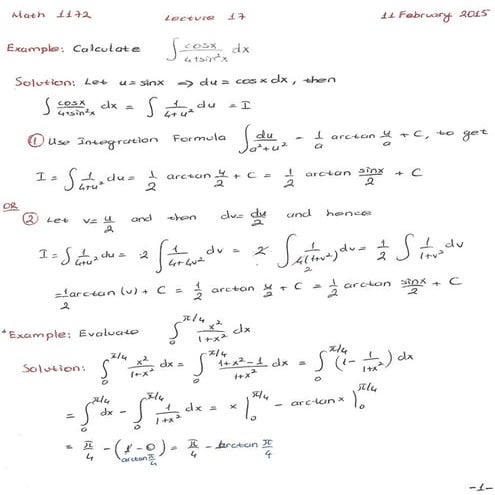 Math 1172 Lecture 17 11 February 2015
Example: Calculate ∫ cosx/(4+sin²x) dx
Solution: Let u=sinx ⇒ du=cosx dx, then
∫ cosx/(4+sin²x) dx = ∫ 1/(4+u²) du = I
① Use Integration Formula ∫ du/(a²+u²) = 1/a arctan u/a + C, to get
I = ∫ 1/(4+u²) du = 1/2 arctan u/2 + C = 1/2 arctan sinx/2 + C
OR
② Let v=u/2 and then dv=du/2 and hence
I = ∫ 1/(4+u²) du = 2 ∫ 1/(4+4v²) dv = 2 ∫ 1/(4(1+v²)) dv = 1/2 ∫ 1/(1+v²) dv
= 1/2 arctan (v) + C = 1/2 arctan u/2 + C = 1/2 arctan sinx/2 + C
*Example: Evaluate ∫₀^(π/4) x²/(1+x²) dx
Solution: ∫₀^(π/4) x²/(1+x²) dx = ∫₀^(π/4) (1+x²-1)/(1+x²) dx = ∫₀^(π/4) (1 - 1/(1+x²)) dx
= ∫₀^(π/4) dx - ∫₀^(π/4) 1/(1+x²) dx = x |₀^(π/4) - arctan x |₀^(π/4)
= π/4 - (arctan π/4 - 0) = π/4 - arctan π/4
-1-